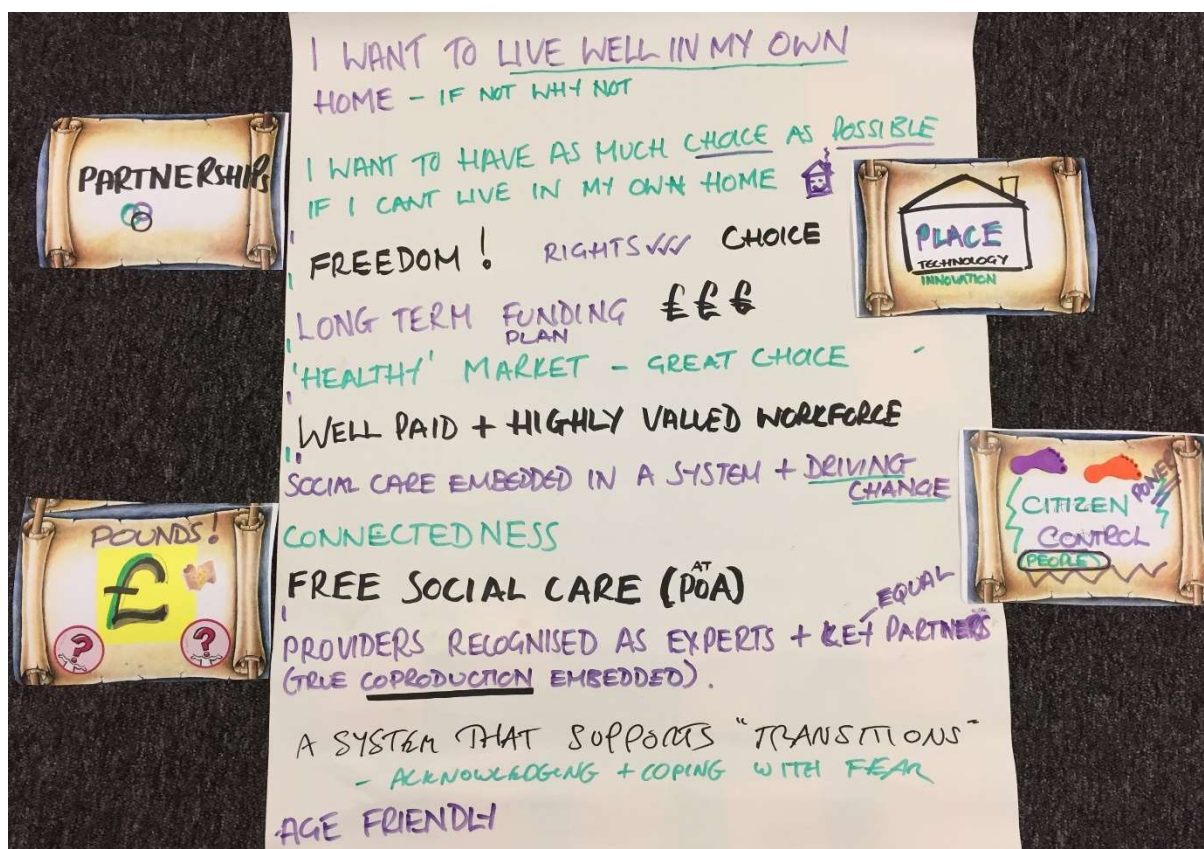 I WANT TO LIVE WELL IN MY OWN
HOME - IF NOT WHY NOT
I WANT TO HAVE AS MUCH CHOICE AS POSSIBLE
IF I CANT LIVE IN MY OWN HOME
FREEDOM! RIGHTS CHOICE
LONG TERM FUNDING £££
PLAN
'HEALTHY' MARKET - GREAT CHOICE
WELL PAID + HIGHLY VALUED WORKFORCE
SOCIAL CARE EMBEDDED IN A SYSTEM + DRIVING
CHANGE
CONNECTEDNESS
FREE SOCIAL CARE (AT POA)
EQUAL
PROVIDERS RECOGNISED AS EXPERTS + KEY PARTNERS
(TRUE COPRODUCTION EMBEDDED).
A SYSTEM THAT SUPPORTS "TRANSITIONS"
- ACKNOWLEDGING + COPING WITH FEAR
AGE FRIENDLY
PARTNERSHIPs
POUNDS!
£
? ?
PLACE
TECHNOLOGY
INNOVATION
POWER
CITIZEN
CONTROL
(PEOPLE)